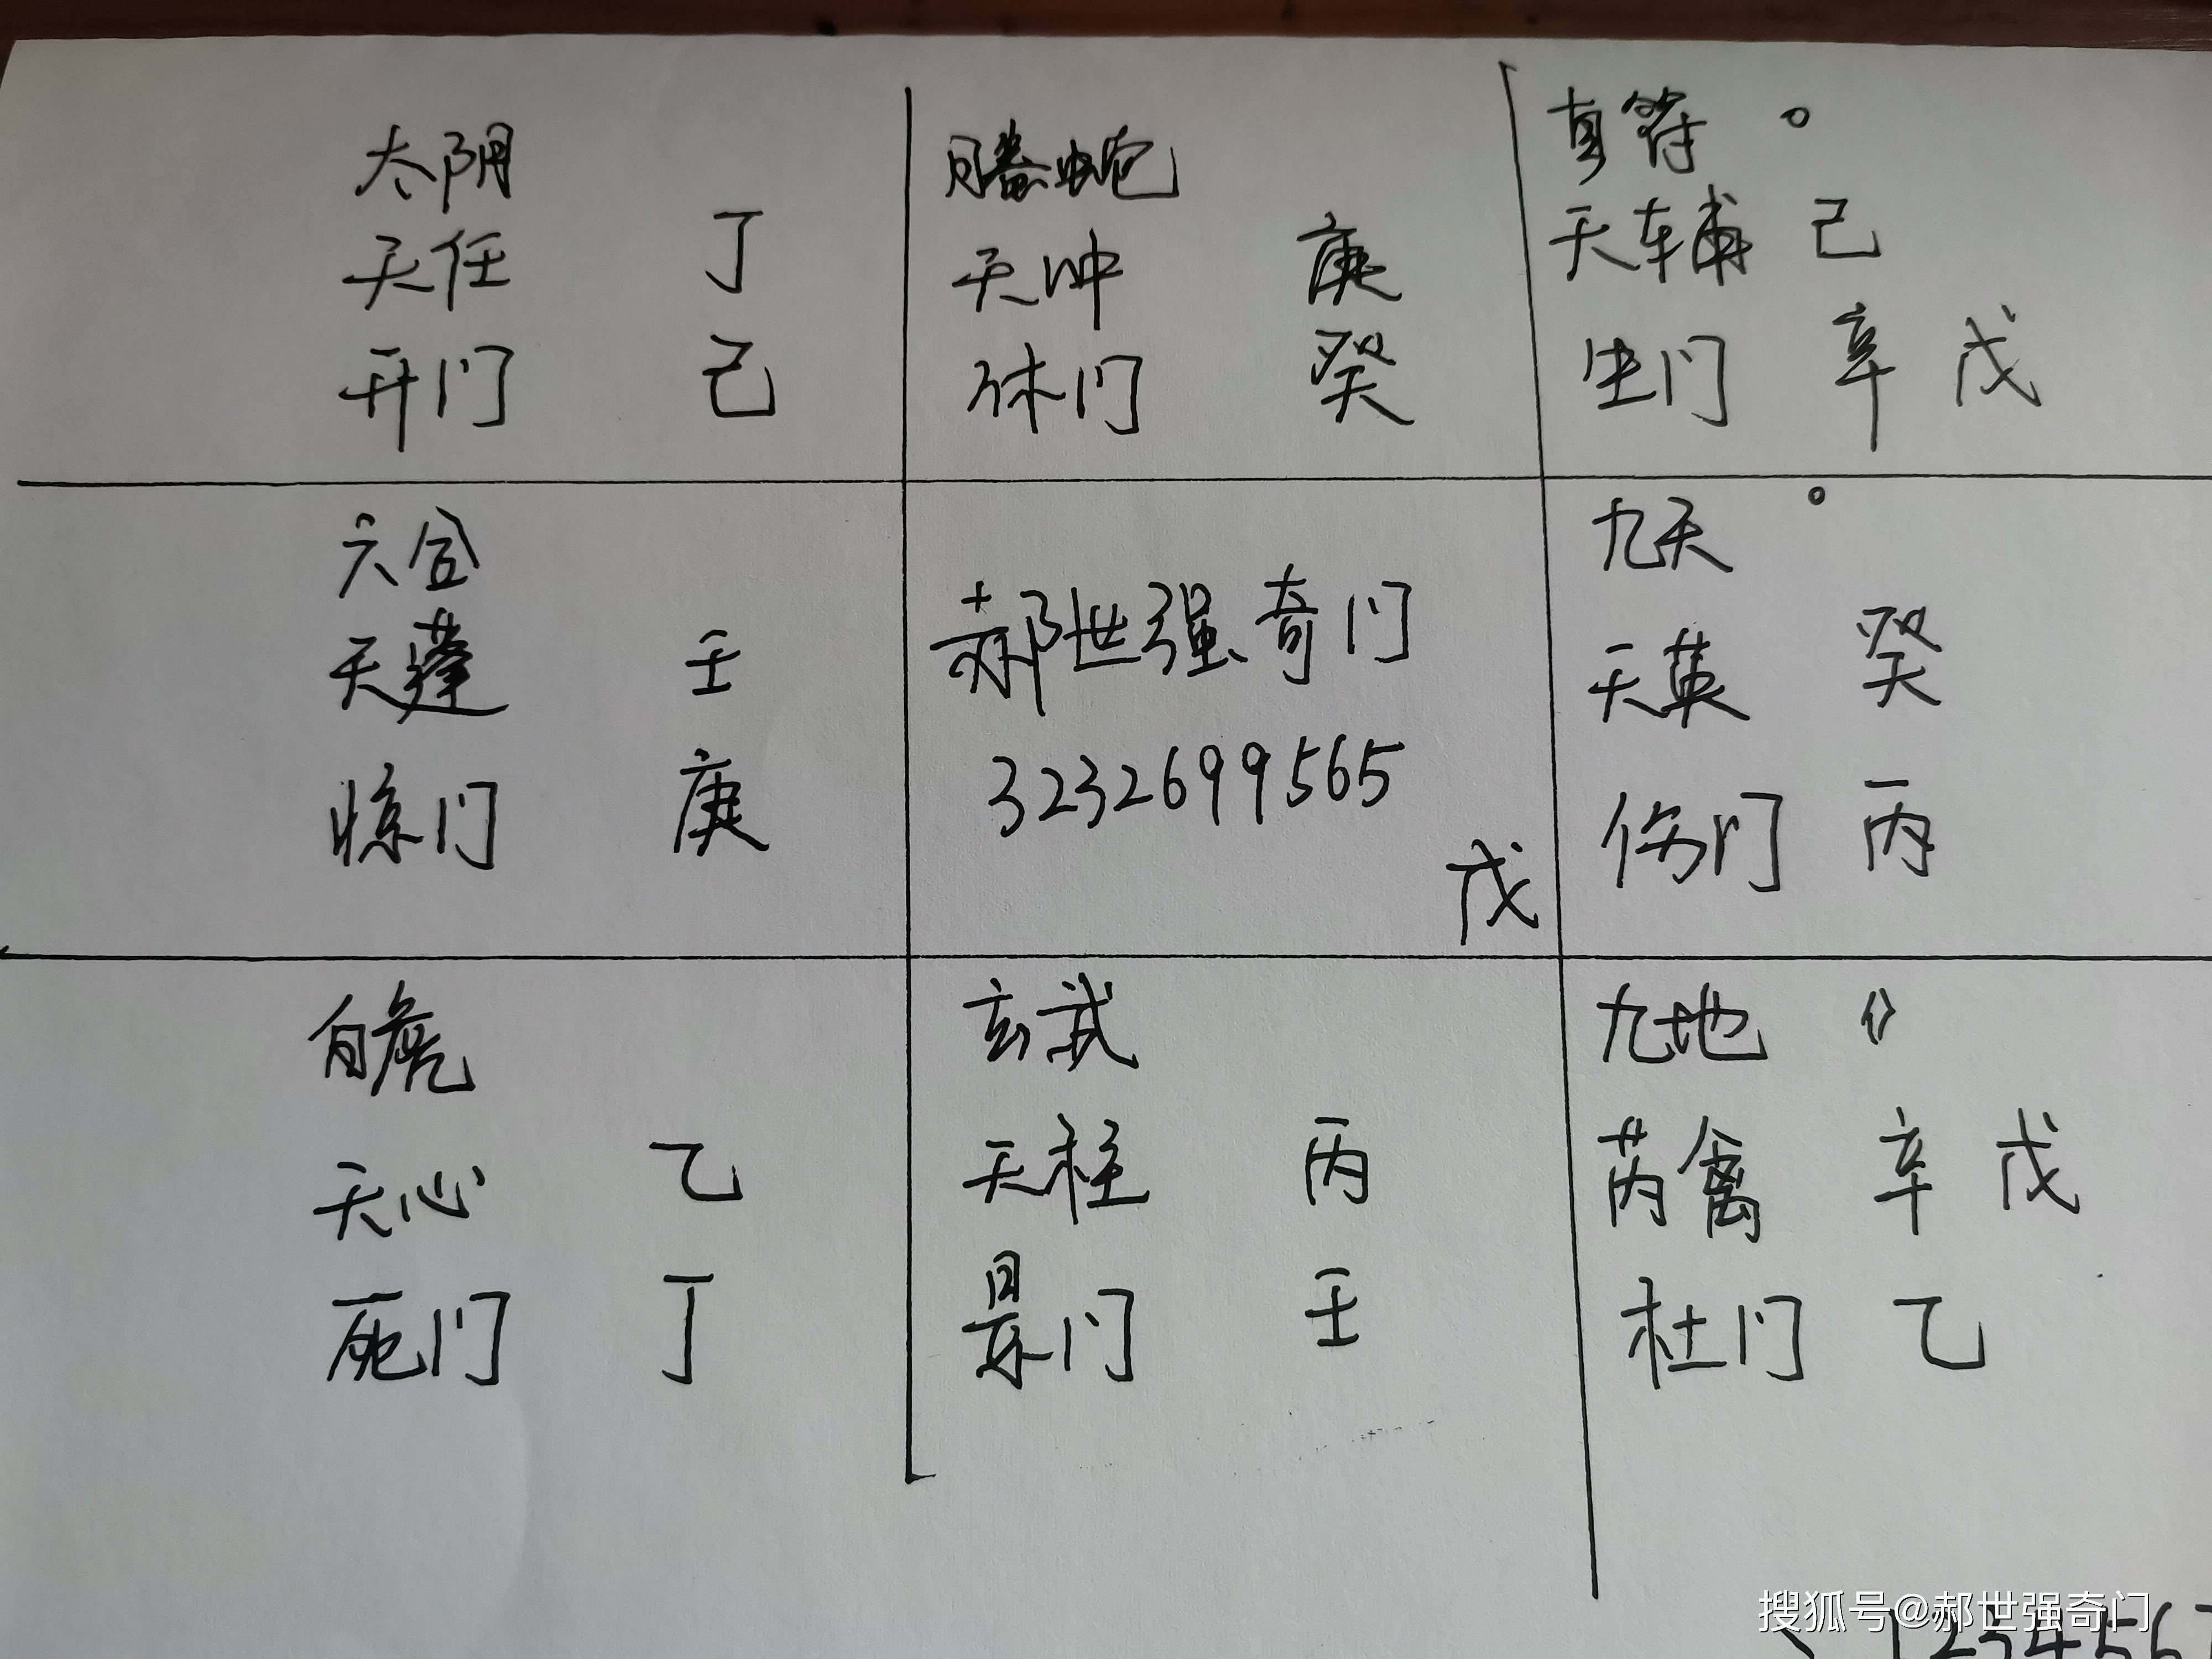 太阴
天任 丁
开门 己
腾蛇
天冲 庚
休门 癸
直符 。
天辅 己
生门 辛 戊
六合
天蓬 壬
惊门 庚
郝世强奇门
3232699565
戊
九天 。
天英 癸
伤门 丙
白虎
天心 乙
死门 丁
玄武
天柱 丙
景门 壬
九地
芮禽 辛 戊
杜门 乙
搜狐号@郝世强奇门